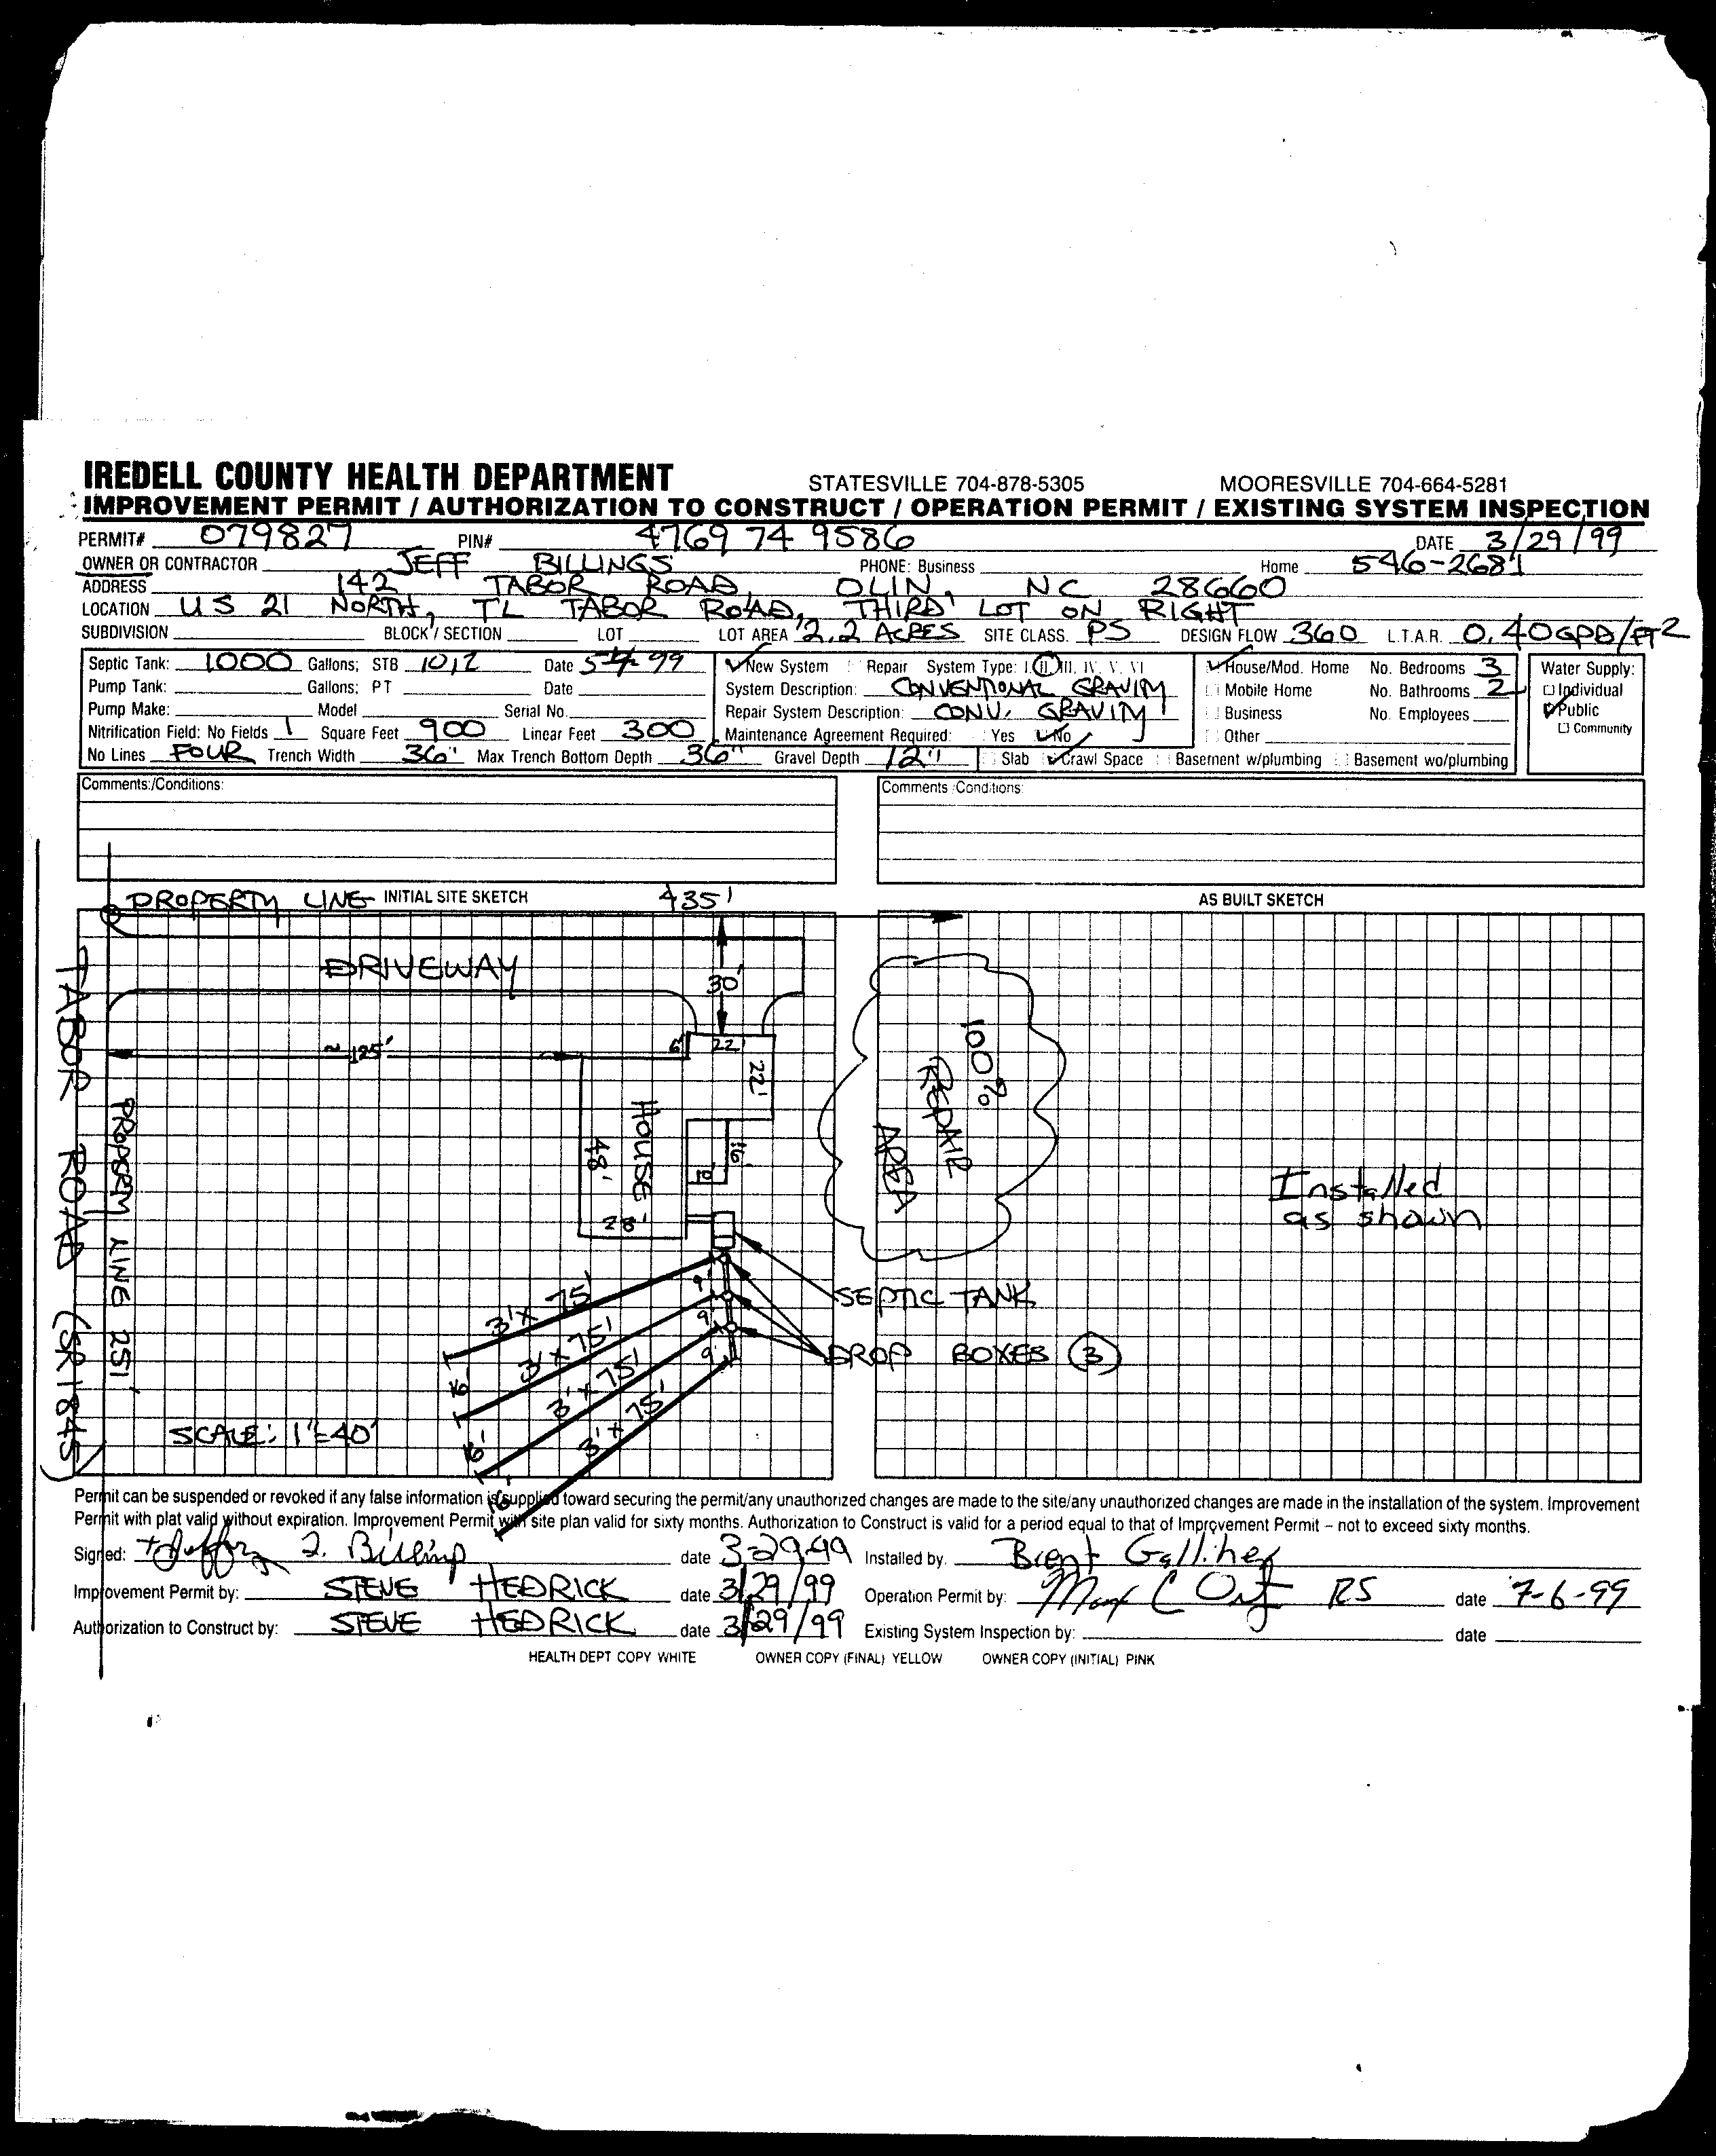 IREDELL COUNTY HEALTH DEPARTMENT STATESVILLE 704-878-5305 MOORESVILLE 704-664-5281
IMPROVEMENT PERMIT / AUTHORIZATION TO CONSTRUCT / OPERATION PERMIT / EXISTING SYSTEM INSPECTION
PERMIT# 079827 PIN# 4769 74 9586 DATE 3/29/99
OWNER OR CONTRACTOR JEFF BILLINGS PHONE: Business Home 546-2681
ADDRESS 142 TABOR ROAD, OLIN, NC 28660
LOCATION US 21 NORTH, TL TABOR ROAD, THIRD LOT ON RIGHT
SUBDIVISION BLOCK / SECTION LOT LOT AREA 2.2 ACRES SITE CLASS. PS DESIGN FLOW 360 L.T.A.R. 0.40GPD/FT2
Septic Tank: 1000 Gallons; STB 1012 Date 99 New System Repair System Type: I II III. IV. V. VI House/Mod. Home No. Bedrooms 3 Water Supply:
Pump Tank: Gallons; PT Date System Description: CONVENTIONAL GRAVITY Mobile Home No. Bathrooms 2 Individual
Pump Make: Model Serial No. Repair System Description: CONV. GRAVITY Business No. Employees Public
Nitrification Field: No Fields 1 Square Feet 900 Linear Feet 300 Maintenance Agreement Required: Yes No Other Community
No Lines FOUR Trench Width 36" Max Trench Bottom Depth 36" Gravel Depth 12" Slab Crawl Space Basement w/plumbing Basement wo/plumbing
Comments:/Conditions: Comments:Conditions:
PROPERTY LINE INITIAL SITE SKETCH 435' AS BUILT SKETCH
DRIVEWAY
30'
~125' 6' 22'
22'
100% REPAIR AREA
TABOR ROAD (SR1845)
PROPERTY LINE 251'
HOUSE
48'
16'
10'
28'
Installed
as shown
SEPTIC TANK
3' x 75' 9'
3' x 75' 9'
3' x 75' 9'
3' x 75'
DROP BOXES (3)
16'
16'
16'
SCALE: 1"=40'
Permit can be suspended or revoked if any false information is supplied toward securing the permit/any unauthorized changes are made to the site/any unauthorized changes are made in the installation of the system. Improvement
Permit with plat valid without expiration. Improvement Permit with site plan valid for sixty months. Authorization to Construct is valid for a period equal to that of Improvement Permit – not to exceed sixty months.
Signed: Billings date 3-29-99 Installed by. Brent Galliher
Improvement Permit by: STEVE HEDRICK date 3/29/99 Operation Permit by: RS date 7-6-99
Authorization to Construct by: STEVE HEDRICK date 3/29/99 Existing System Inspection by: date
HEALTH DEPT COPY WHITE OWNER COPY (FINAL) YELLOW OWNER COPY (INITIAL) PINK